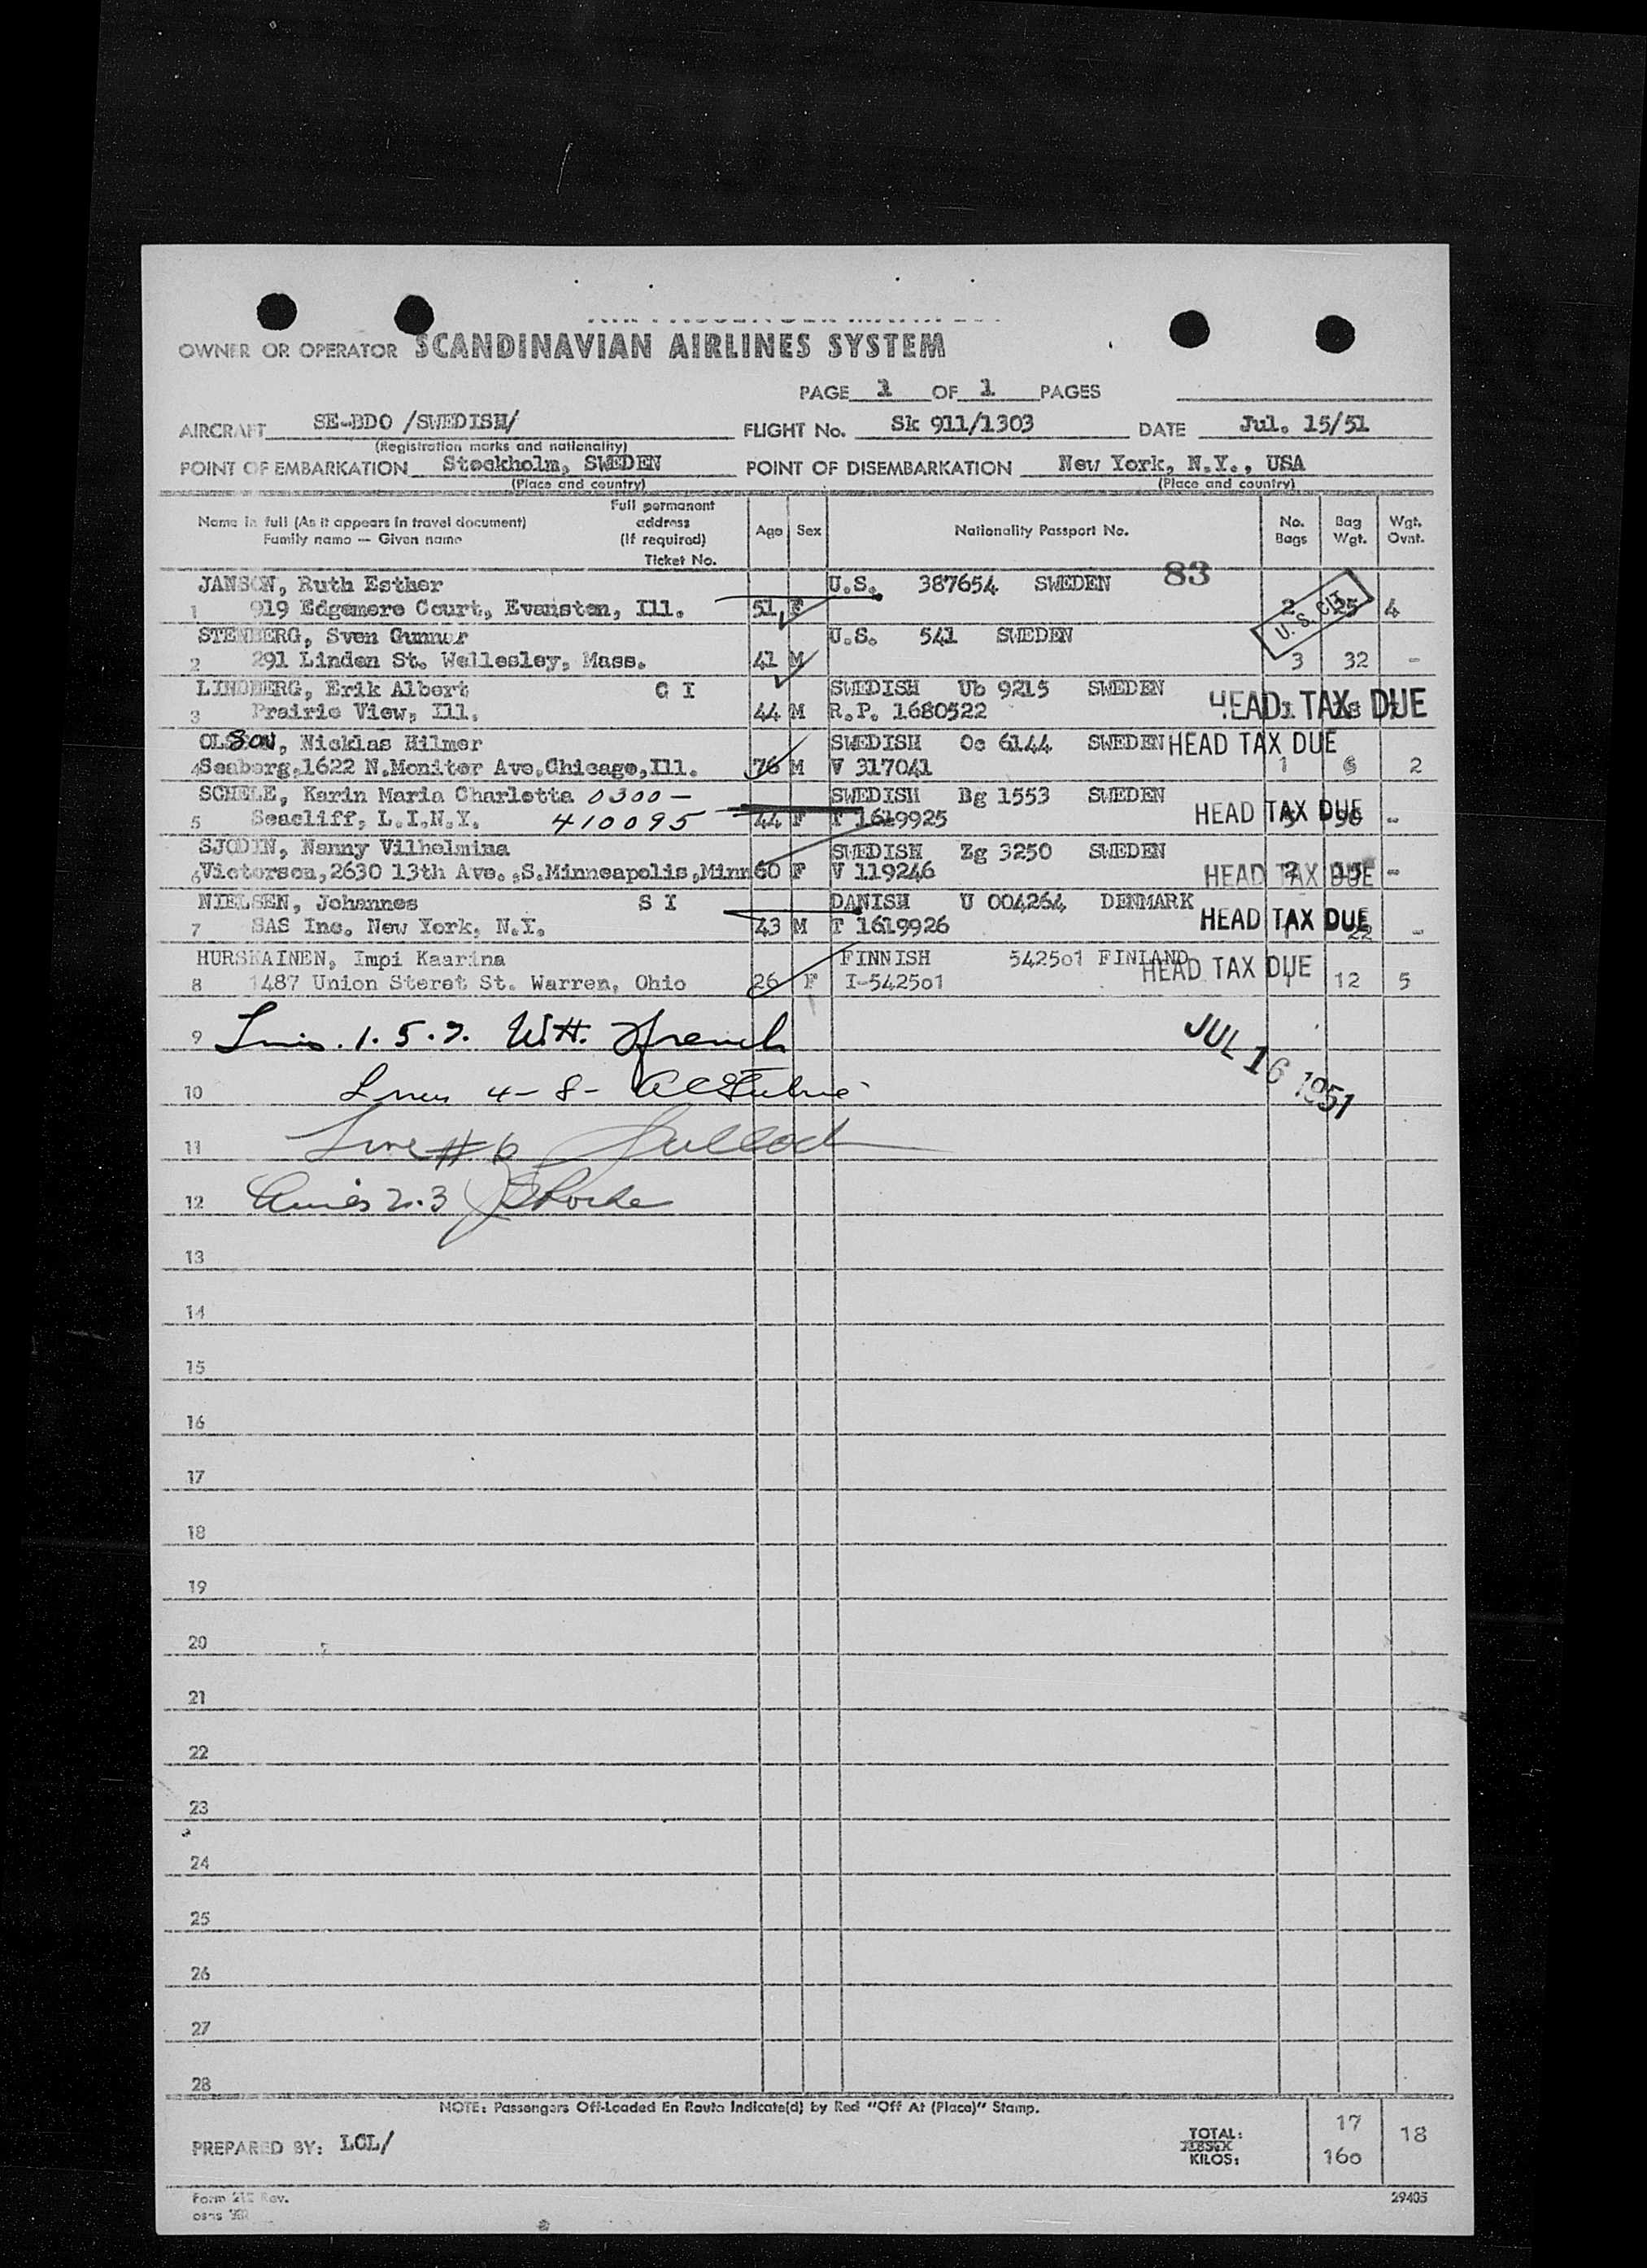 OWNER OR OPERATOR SCANDINAVIAN AIRLINES SYSTEM
PAGE 1 OF 1 PAGES
AIRCRAFT SE-BDO /SWEDISH/ FLIGHT No. Sk 911/1303 DATE Jul. 15/51
(Registration marks and nationality)
POINT OF EMBARKATION Stockholm, SWEDEN POINT OF DISEMBARKATION New York, N.Y., USA
(Place and country) (Place and country)
Name in full (As it appears in travel document) Family name — Given name Full permanent address (If required) Ticket No. Age Sex Nationality Passport No. No. Bags Bag Wgt. Wgt. Ovnt.
83
JANSON, Ruth Esther U.S. 387654 SWEDEN
1 919 Edgemere Court, Evanston, Ill. 51 F 2 25 4
U.S. CIT
STENBERG, Sven Gunnar U.S. 541 SWEDEN
2 291 Linden St. Wellesley, Mass. 41 M 3 32 -
LINDBERG, Erik Albert C I SWEDISH Ub 9215 SWEDEN
3 Prairie View, Ill. 44 M R.P. 1680522 HEAD TAX DUE
OLSON, Nicklas Hilmer SWEDISH Oc 6144 SWEDEN HEAD TAX DUE
4 Seaberg, 1622 N.Moniter Ave.Chicago, Ill. 76 M V 317041 1 6 2
SCHELE, Karin Maria Charlotta 0300 - SWEDISH Bg 1553 SWEDEN
5 Seacliff, L.I.N.Y. 410095 44 F T 1619925 HEAD TAX DUE -
SJODIN, Nanny Vilhelmina SWEDISH Zg 3250 SWEDEN
6 Victorson, 2630 13th Ave.,S.Minneapolis,Minn 60 F V 119246 HEAD TAX DUE -
NIELSEN, Johannes S I DANISH U 004264 DENMARK
7 SAS Inc. New York, N.Y. 43 M T 1619926 HEAD TAX DUE 22 -
HURSKAINEN, Impi Kaarina FINNISH 542501 FINLAND
8 1487 Union Steret St. Warren, Ohio 26 F I-542501 HEAD TAX DUE 1 12 5
9 1.5.7. W.H. French
JUL 16 1951
10 Lines 4-8-
11 Line #6 Bulloch
12 Lines 2.3
13
14
15
16
17
18
19
20
21
22
23
24
25
26
27
28
NOTE: Passengers Off-Loaded En Route Indicate(d) by Red "Off At (Place)" Stamp.
PREPARED BY: LCL/ TOTAL: 17 18
KILOS: 160
Form 212 Rev. 29405